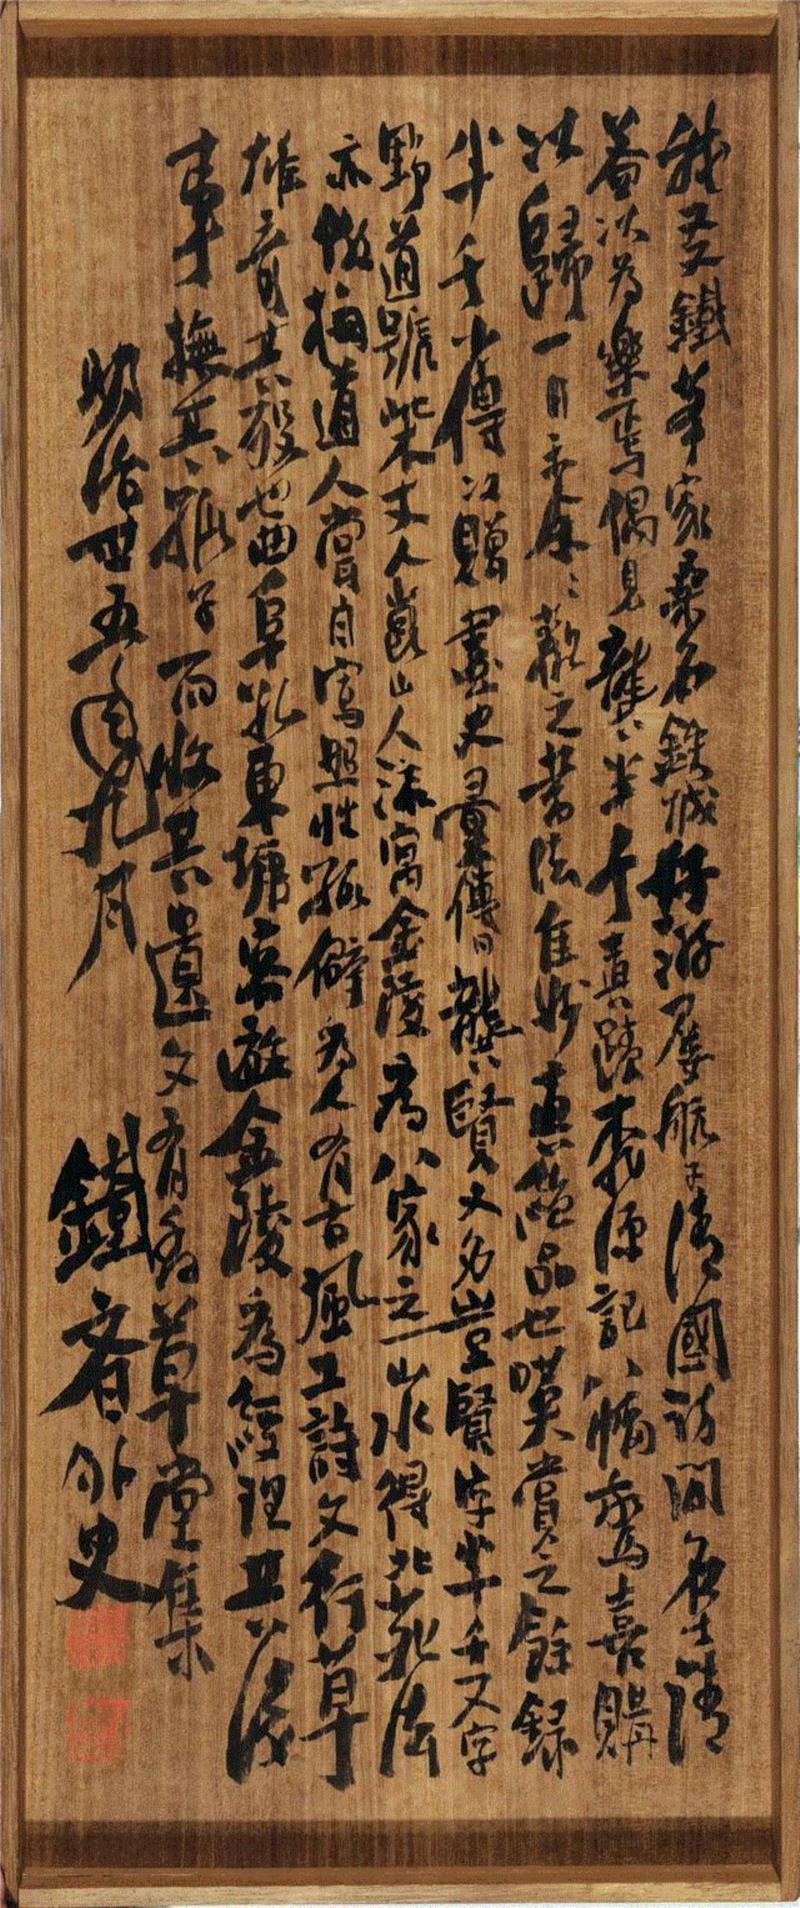 我友鐵峯家桑名鉄城好游屢航于清國訪問名士清
蓋以為樂焉偶見龔半千真蹟桃源記八幅驚喜購
以歸一日示余々觀之茖法佳妙真鑑品也嘆賞之餘錄
半千小傳以贈畫史彙傳曰龔賢又名豈賢字半千又字
野遺號柴丈人崑山人流寓金陵為八家之一山水得北苑法
亦倣梅道人嘗自寫照性孤僻為人有古風工詩文行草
雄奇其歿也曲阜孔東塘客遊金陵為經理其後
事撫其孤子而收其遺文有香草堂集
明治卌五年九月
鐵齋外史